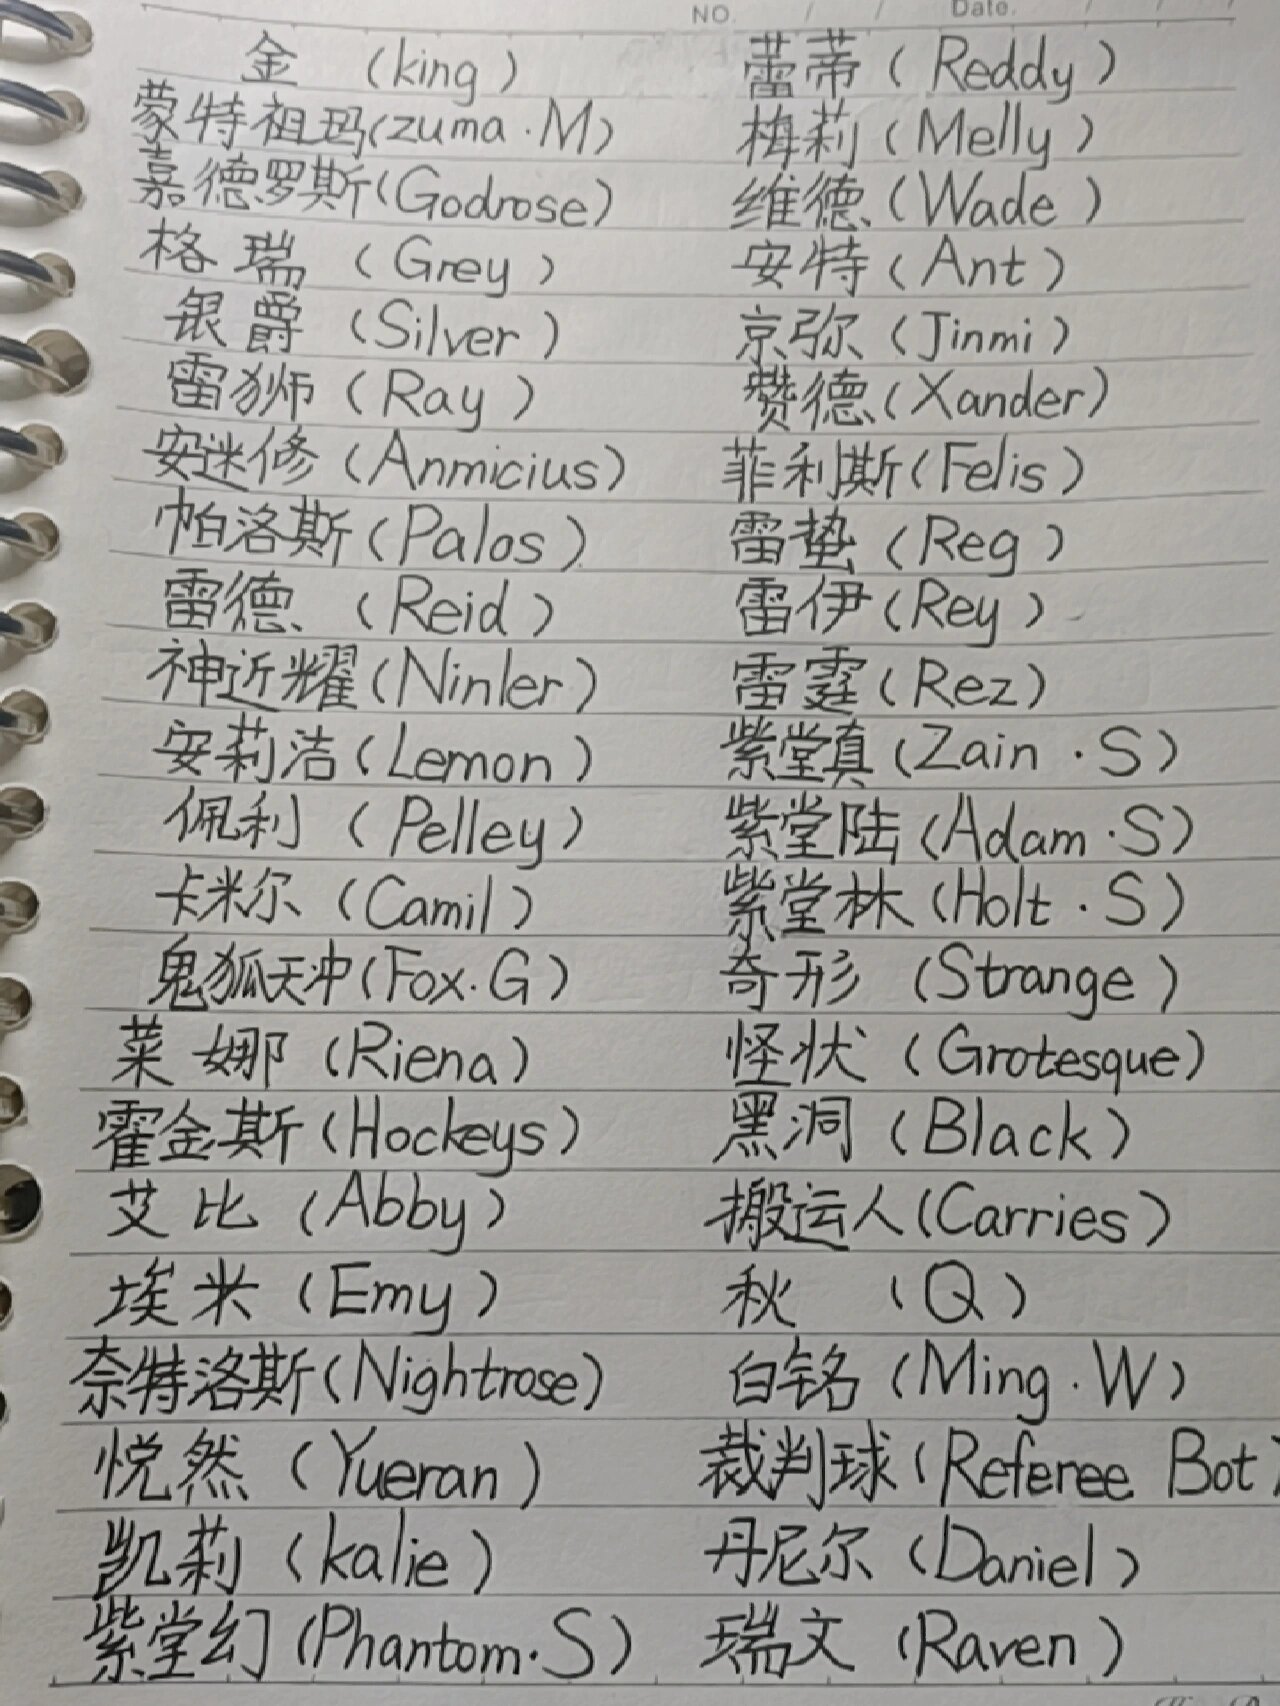 NO. / / Date. / /
金 (king)
蒙特祖玛(zuma·M)
嘉德罗斯(Godrose)
格瑞 (Grey)
银爵 (Silver)
雷狮 (Ray)
安迷修 (Anmicius)
帕洛斯(Palos)
雷德 (Reid)
神近耀(Ninler)
安莉洁(Lemon)
佩利 (Pelley)
卡米尔 (Camil)
鬼狐天冲(Fox.G)
莱娜 (Riena)
霍金斯(Hockeys)
艾比 (Abby)
埃米 (Emy)
奈特洛斯(Nightrose)
悦然 (Yueran)
凯莉 (kalie)
紫堂幻(Phantom·S)
蕾蒂(Reddy)
梅莉(Melly)
维德(Wade)
安特(Ant)
京弥(Jinmi)
赞德(Xander)
菲利斯(Felis)
雷蛰(Reg)
雷伊(Rey)
雷霆(Rez)
紫堂真(Zain·S)
紫堂陆(Adam·S)
紫堂林(Holt·S)
奇形 (Strange)
怪状 (Grotesque)
黑洞 (Black)
搬运人(Carries)
秋 (Q)
白铭(Ming.W)
裁判球(Referee Bot)
丹尼尔(Daniel)
瑞文 (Raven)